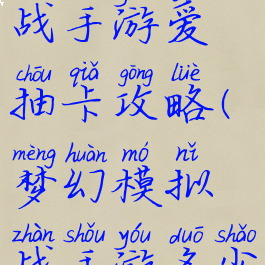 战手游爱
chōu qiǎ gōng lüè
抽卡攻略(
mèng huàn mó nǐ
梦幻模拟
zhàn shǒu yóu duō shǎo
战手游多少